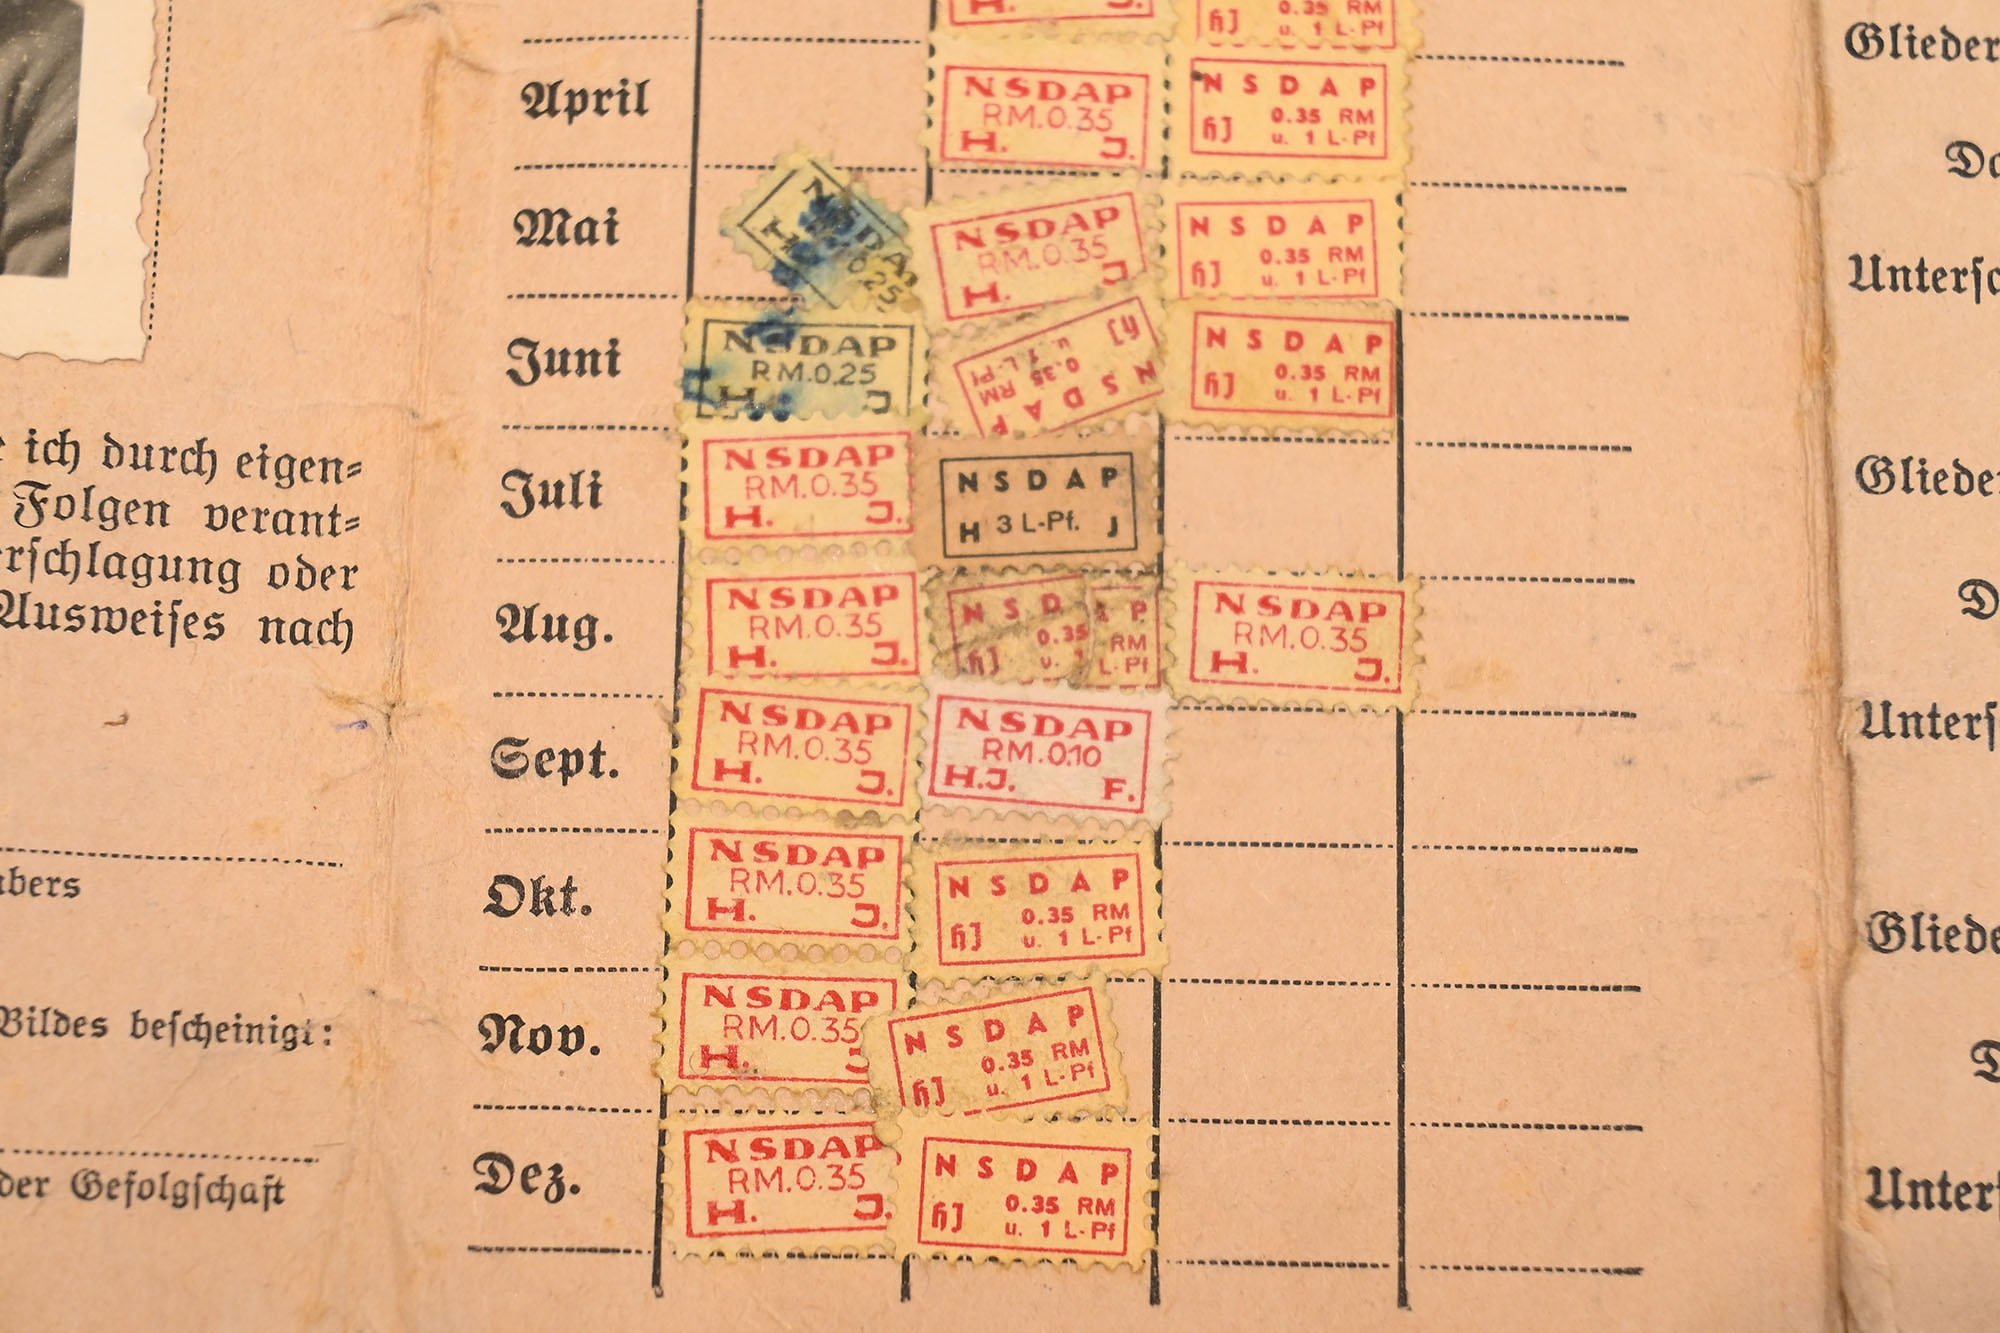 H. J.
0.35 RM
HJ u. 1 L-Pf
April
NSDAP
RM.0.35
H. J.
NSDAP
0.35 RM
HJ u. 1 L-Pf
Mai
NSDAP
0.25
H
NSDAP
RM.0.35
H. J
NSDAP
0.35 RM
HJ u. 1 L-Pf
Juni
NSDAP
RM.0.25
H J
NSDAP
0.35 RM
HJ u. 1 L-Pf
NSDAP
0.35 RM
HJ u. 1 L-Pf
Juli
NSDAP
RM.0.35
H. J.
NSDAP
H 3 L-Pf. J
Aug.
NSDAP
RM.0.35
H. J.
NSD A P
0.35 RM
HJ u. 1 L-Pf
NSDAP
RM.0.35
H. J.
Sept.
NSDAP
RM.0.35
H. J.
NSDAP
RM.0.10
H.J. F.
Okt.
NSDAP
RM.0.35
H. J.
NSDAP
0.35 RM
HJ u. 1 L-Pf
Nov.
NSDAP
RM.0.35
H. J
NSDAP
0.35 RM
HJ u. 1 L-Pf
Dez.
NSDAP
RM.0.35
H. J.
NSDAP
0.35 RM
HJ u. 1 L-Pf
ich durch eigen-
Folgen verant-
rschlagung oder
Ausweises nach
abers
Bildes bescheinigt:
der Gefolgschaft
Glieder
Da
Untersc
Glieder
D
Unters
Gliede
D
Unters